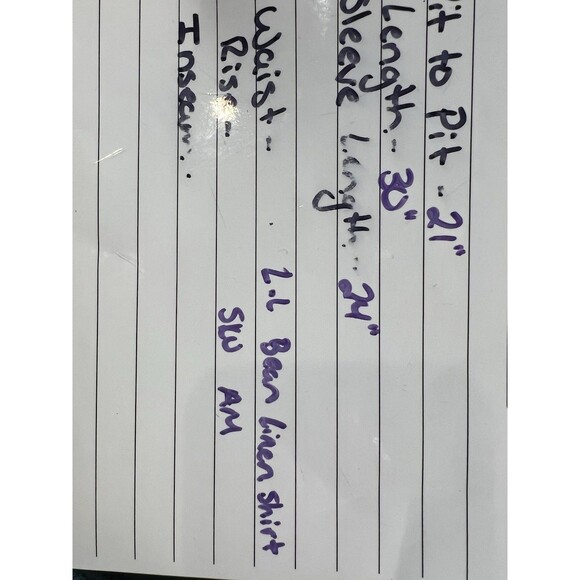 it to Pit - 21"
Length - 30"
Sleeve Length... 24"
Waist -
Rise -
Inseam..
L.L Bean Linen Shirt
SW AM